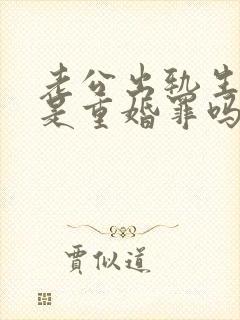 老公出轨生
是重婚罪吗
贾似道